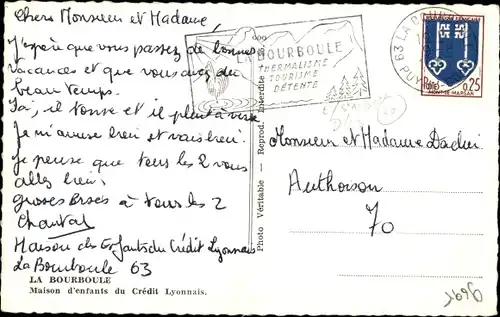 Chers Monsieur et Madame,
J'espère que vous passez de bonnes
vacances et que vous avez du
beau temps.
Ici, il tonne et il pleut à verse
Je m'amuse bien et vais bien.
Je pense que tous les 2 vous
allez bien.
grosses bises à tous les 2
Chantal
Maison des Enfants du Crédit Lyonnais
La Bourboule 63
LA BOURBOULE
Maison d'enfants du Crédit Lyonnais.
Photo Véritable — Reprod. Interdite
LA BOURBOULE
THERMALISME
TOURISME
DÉTENTE
63 LA BOURBOULE
PUY-DE-DOME
0,25
MONT DE MARSAN
Monsieur et Madame
Authoison
70